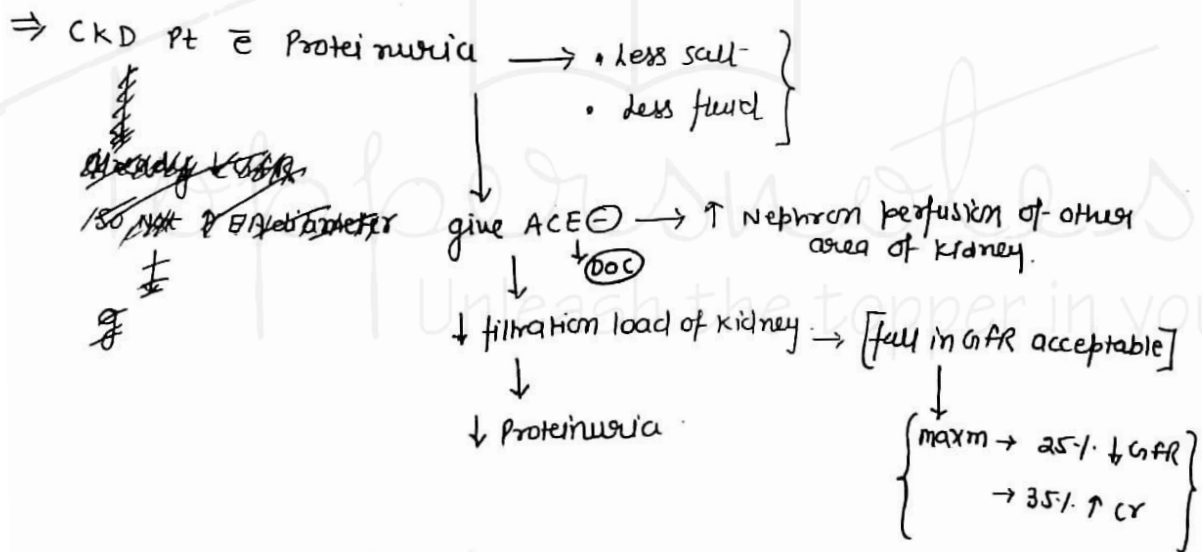 ⇒ CKD Pt c̄ Proteinuria → • Less salt
• Less fluid
give ACE⊖ → ↑ Nephron perfusion of other
area of kidney.
↓ DOC
↓ filtration load of kidney → [fall in GFR acceptable]
↓ Proteinuria
maxm → 25% ↓ GFR
→ 35% ↑ Cr
toppersnotes
Unleash the topper in you